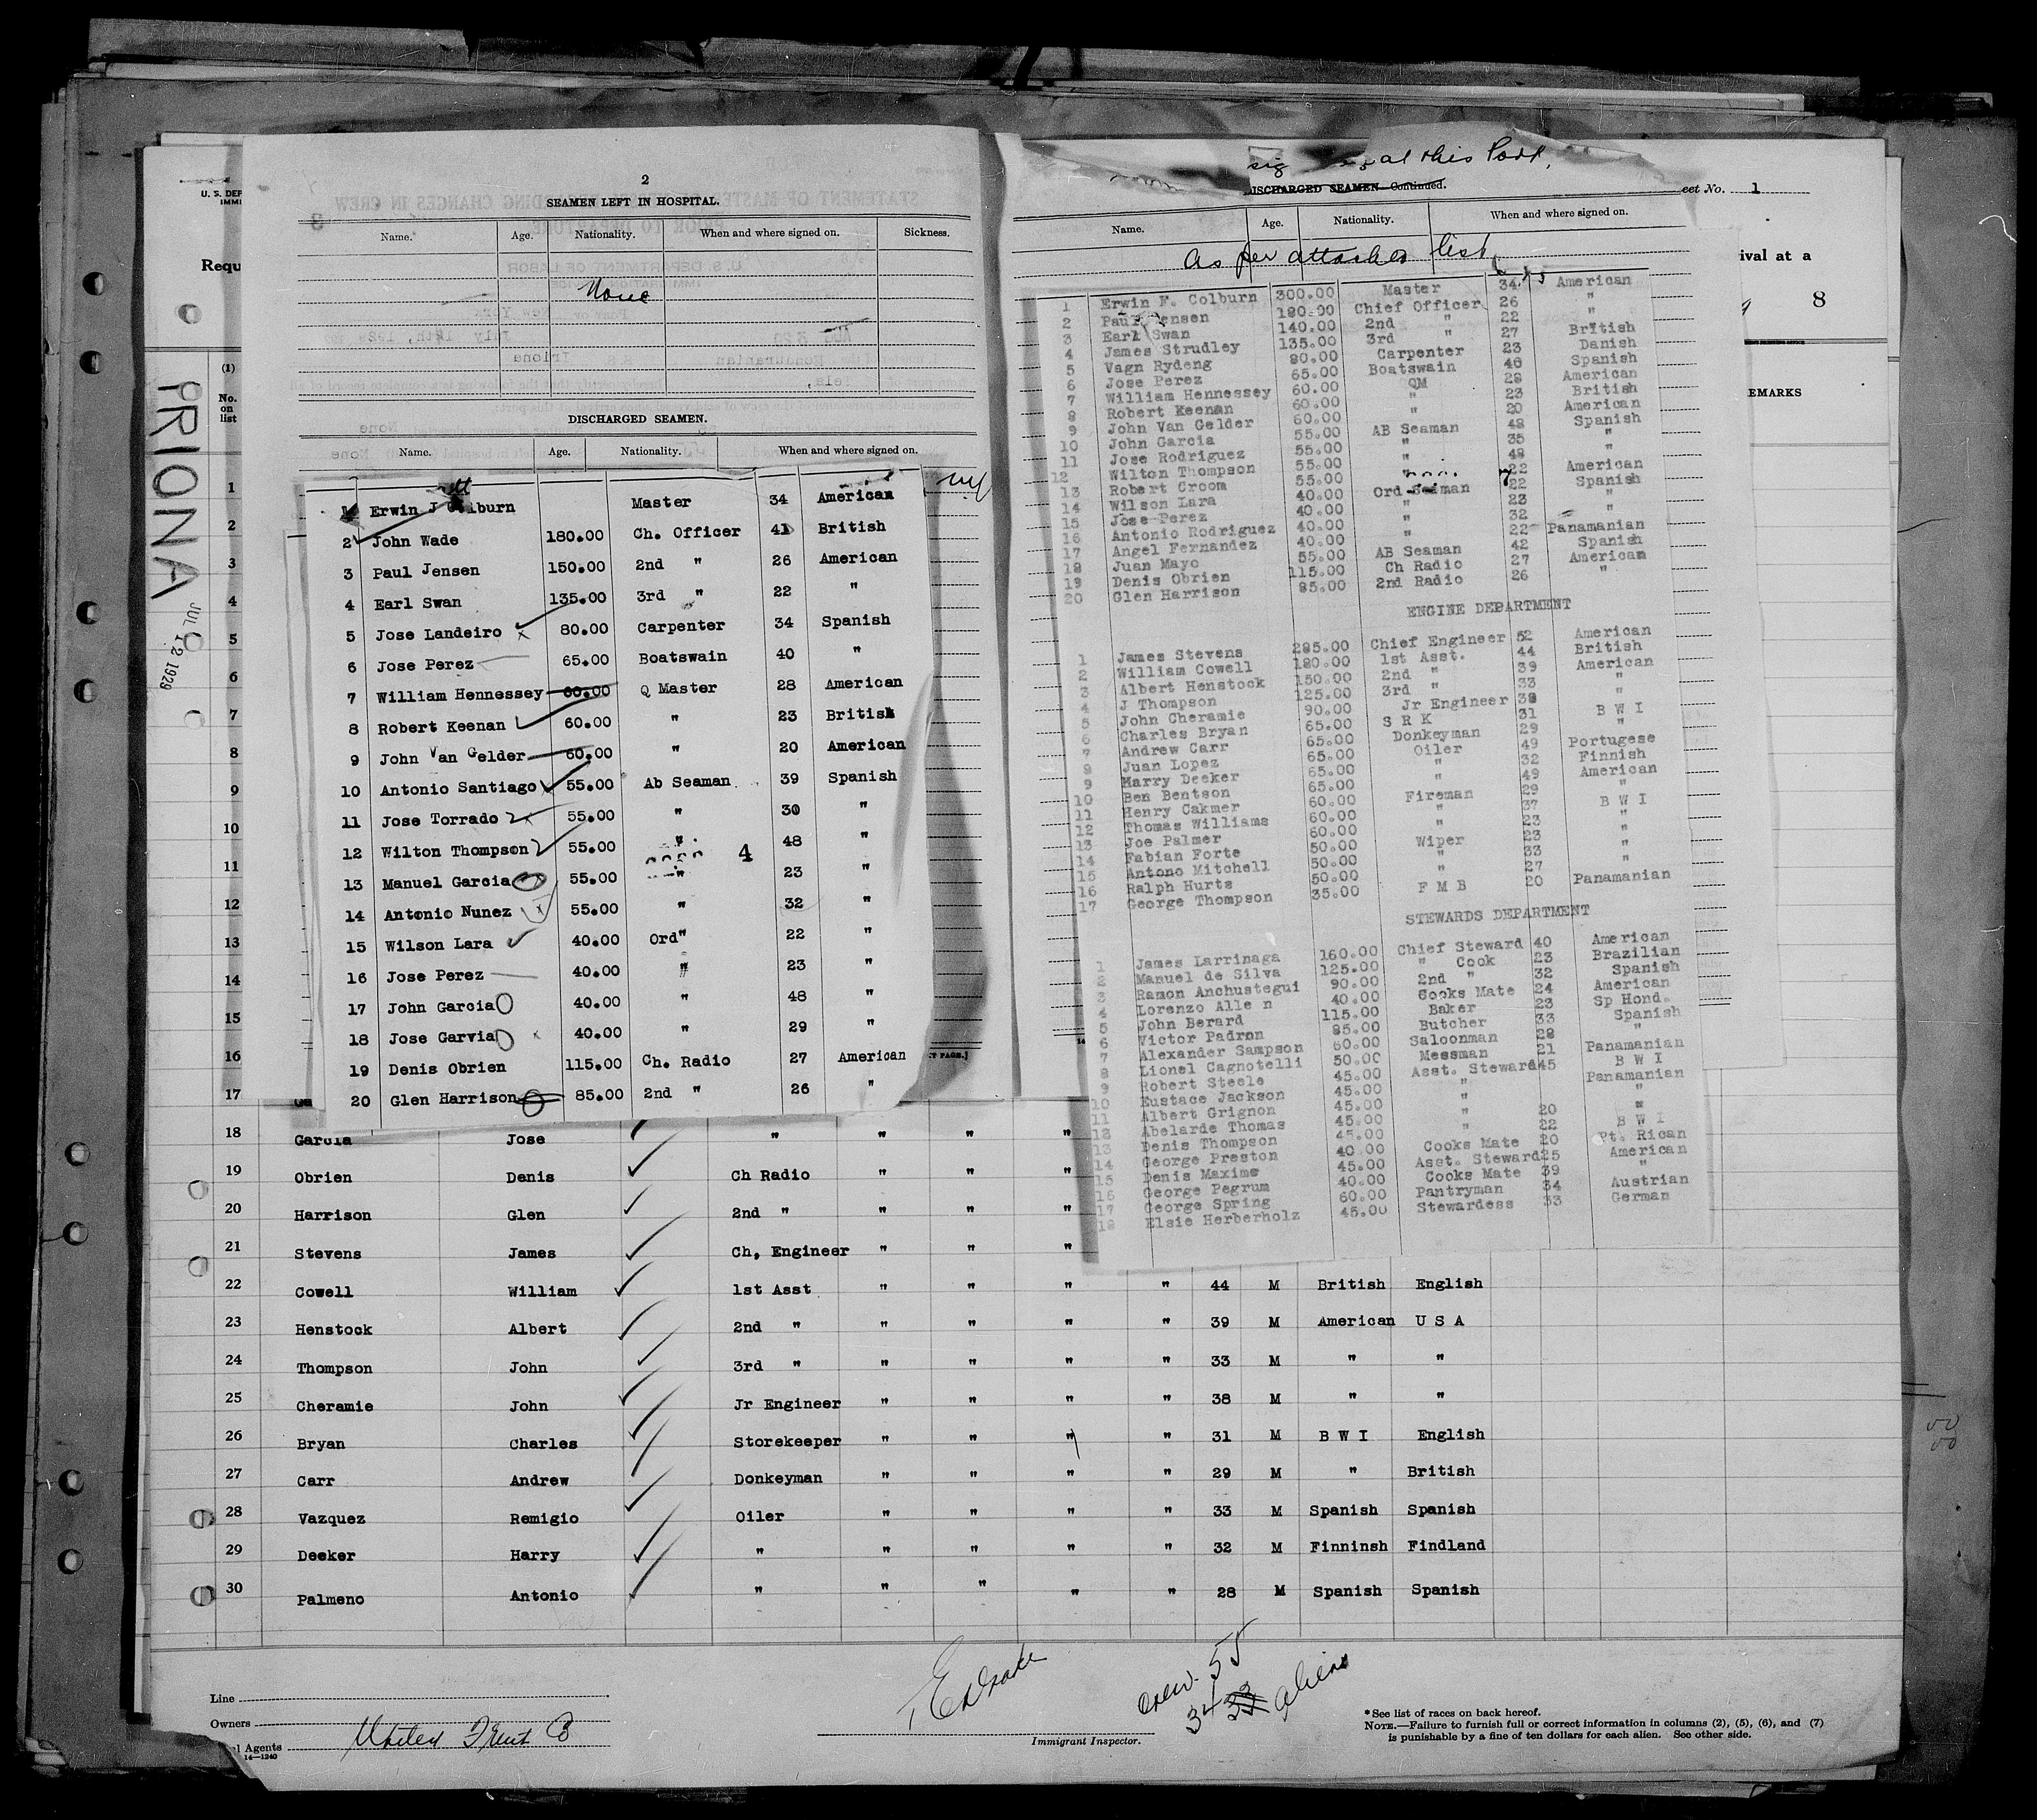 2
SEAMEN LEFT IN HOSPITAL.
Name. Age. Nationality. When and where signed on. Sickness.
None
DISCHARGED SEAMEN.
Name. Age. Nationality. When and where signed on.
1 Erwin J Colburn Master 34 American
2 John Wade 180.00 Ch. Officer 41 British
3 Paul Jensen 150.00 2nd " 26 American
4 Earl Swan 135.00 3rd " 22 "
5 Jose Landeiro 80.00 Carpenter 34 Spanish
6 Jose Perez 65.00 Boatswain 40 "
7 William Hennessey 60.00 Q Master 28 American
8 Robert Keenan 60.00 " 23 British
9 John Van Gelder 60.00 " 20 American
10 Antonio Santiago 55.00 Ab Seaman 39 Spanish
11 Jose Torrado 55.00 " 30 "
12 Wilton Thompson 55.00 " 48 "
4
13 Manuel Garcia 55.00 " 23 "
14 Antonio Nunez 55.00 " 32 "
15 Wilson Lara 40.00 Ord" 22 "
16 Jose Perez 40.00 " 23 "
17 John Garcia 40.00 " 48 "
18 Jose Garvia 40.00 " 29 "
19 Denis Obrien 115.00 Ch. Radio 27 American
20 Glen Harrison 85.00 2nd " 26 "
at this Port,
DISCHARGED SEAMEN—Continued.
eet No. 1
Name. Age. Nationality. When and where signed on.
As per attached list
1 Erwin F. Colburn 300.00 Master 34 American
2 Paul Jensen 180.00 Chief Officer 26 "
3 Earl Swan 140.00 2nd " 22 "
4 James Strudley 135.00 3rd 27 British
5 Vagn Rydeng 80.00 Carpenter 23 Danish
6 Jose Perez 65.00 Boatswain 40 Spanish
7 William Hennessey 60.00 QM 28 American
8 Robert Keenan 60.00 " 23 British
9 John Van Gelder 60.00 " 20 American
10 John Garcia 55.00 AB Seaman 48 Spanish
11 Jose Rodriguez 55.00 " 35 "
12 Wilton Thompson 55.00 " 48 "
13 Robert Croom 55.00 " 22 American
14 Wilson Lara 40.00 Ord Seaman 22 Spanish
15 Jose Perez 40.00 " 23 "
16 Antonio Rodriguez 40.00 " 32 "
17 Angel Fernandez 40.00 " 22 Panamanian
18 Juan Mayo 55.00 AB Seaman 42 Spanish
19 Denis Obrien 115.00 Ch Radio 27 American
20 Glen Harrison 85.00 2nd Radio 26 "
ENGINE DEPARTMENT
1 James Stevens 285.00 Chief Engineer 52 American
2 William Cowell 180.00 1st Asst. 44 British
3 Albert Henstock 150.00 2nd " 39 American
4 J Thompson 125.00 3rd " 33 "
5 John Cheramie 90.00 Jr Engineer 38 "
6 Charles Bryan 65.00 S R K 31 B W I
7 Andrew Carr 65.00 Donkeyman 29 "
8 Juan Lopez 65.00 Oiler 49 Portugese
9 Harry Deeker 65.00 " 32 Finnish
10 Ben Bentson 65.00 " 49 American
11 Henry Cakmer 60.00 Fireman 29 "
12 Thomas Williams 60.00 " 37 B W I
13 Joe Palmer 60.00 " 23 "
14 Fabian Forte 50.00 Wiper 23 "
15 Antono Mitchell 50.00 " 33 "
16 Ralph Hurts 50.00 " 27 "
17 George Thompson 35.00 F M B 20 Panamanian
STEWARDS DEPARTMENT
1 James Larrinaga 160.00 Chief Steward 40 American
2 Manuel de Silva 125.00 " Cook 23 Brazilian
3 Ramon Anchustegui 90.00 2nd " 32 Spanish
4 Lorenzo Alle n 40.00 Cooks Mate 24 American
5 John Berard 115.00 Baker 23 Sp Hond.
6 Victor Padron 85.00 Butcher 33 Spanish
7 Alexander Sampson 60.00 Saloonman 28 "
8 Lionel Cagnotelli 50.00 Messman 21 Panamanian
9 Robert Steele 45.00 Asst. Steward 45 B W I
10 Eustace Jackson 45.00 " Panamanian
11 Albert Grignon 45.00 " "
12 Abelarde Thomas 45.00 " 20 "
13 Denis Thompson 45.00 " 22 B W I
14 George Preston 40.00 Cooks Mate 20 Pt. Rican
15 Denis Maxime 45.00 Asst. Steward 25 American
16 George Pegrum 40.00 Cooks Mate 39 "
17 George Spring 60.00 Pantryman 34 Austrian
18 Elsie Herberholz 45.00 Stewardess 33 German
U. S. DEP
IMMI
Requ
ival at a
8
EMARKS
(1)
No. on list
PRIONA
JUL 12 1929
1
2
3
4
5
6
7
8
9
10
11
12
13
14
15
16
17
18 Garcia Jose " " " "
19 Obrien Denis Ch Radio " " "
20 Harrison Glen 2nd " " " "
21 Stevens James Ch, Engineer " " "
22 Cowell William 1st Asst " " " " 44 M British English
23 Henstock Albert 2nd " " " " " 39 M American U S A
24 Thompson John 3rd " " " " " 33 M " "
25 Cheramie John Jr Engineer " " " " 38 M " "
26 Bryan Charles Storekeeper " " " " 31 M B W I English
27 Carr Andrew Donkeyman " " " " 29 M " British
28 Vazquez Remigio Oiler " " " " 33 M Spanish Spanish
29 Deeker Harry " " " " " 32 M Finninsh Findland
30 Palmeno Antonio " " " " " 28 M Spanish Spanish
crew. 55
34 aliens
Line
Owners
l Agents United Fruit Co
14—1240
Immigrant Inspector.
* See list of races on back hereof.
NOTE.—Failure to furnish full or correct information in columns (2), (5), (6), and (7)
is punishable by a fine of ten dollars for each alien. See other side.